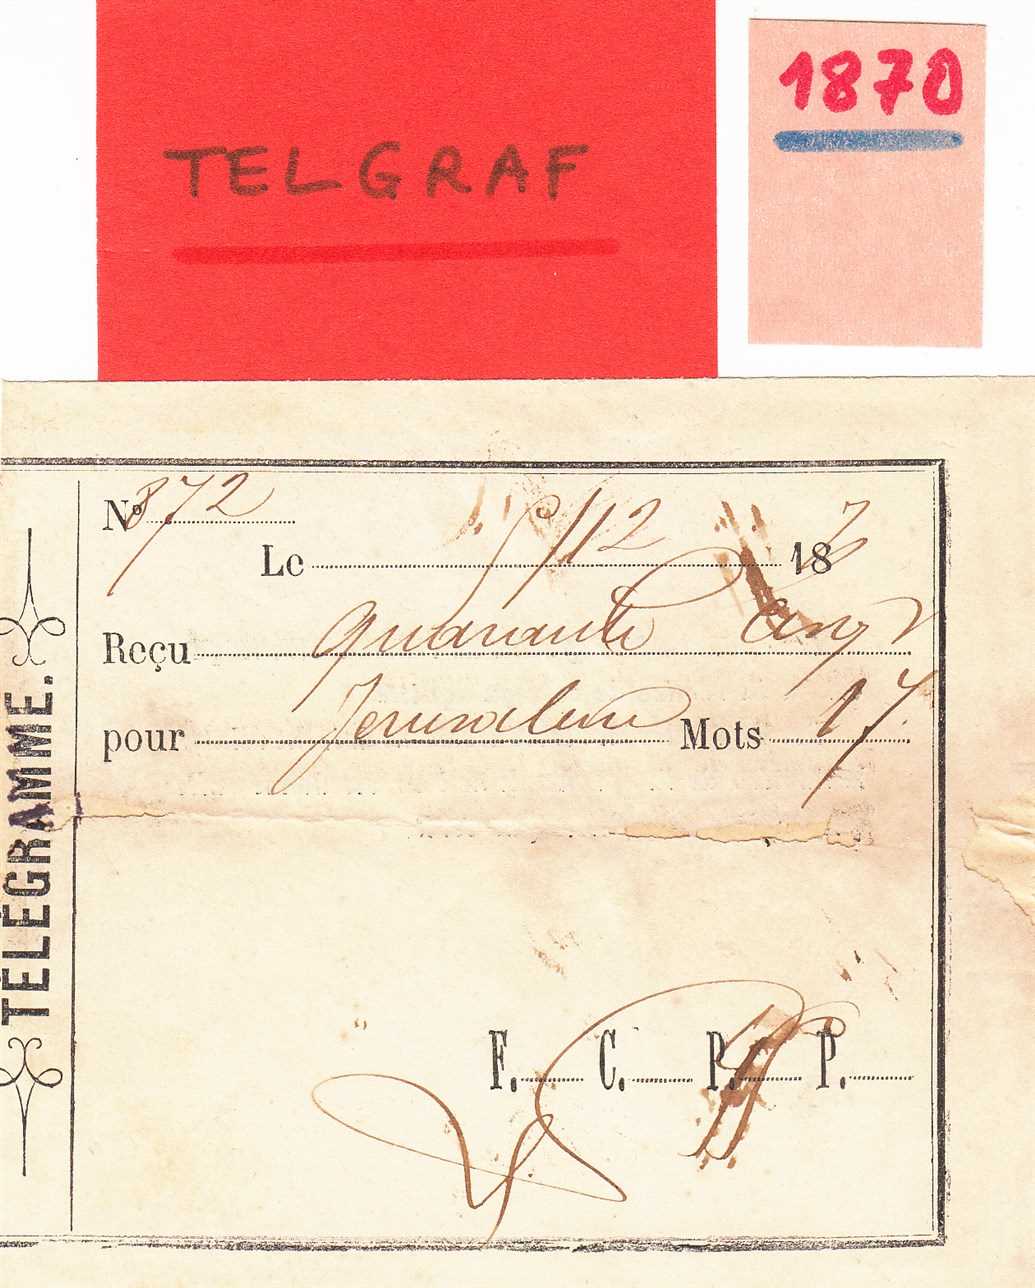 TELGRAF
1870
No 872
Le 5/12 187
Reçu quarante Cinq
pour Jerusalem Mots 17
F. C. P. P.
TÉLÉGRAMME.